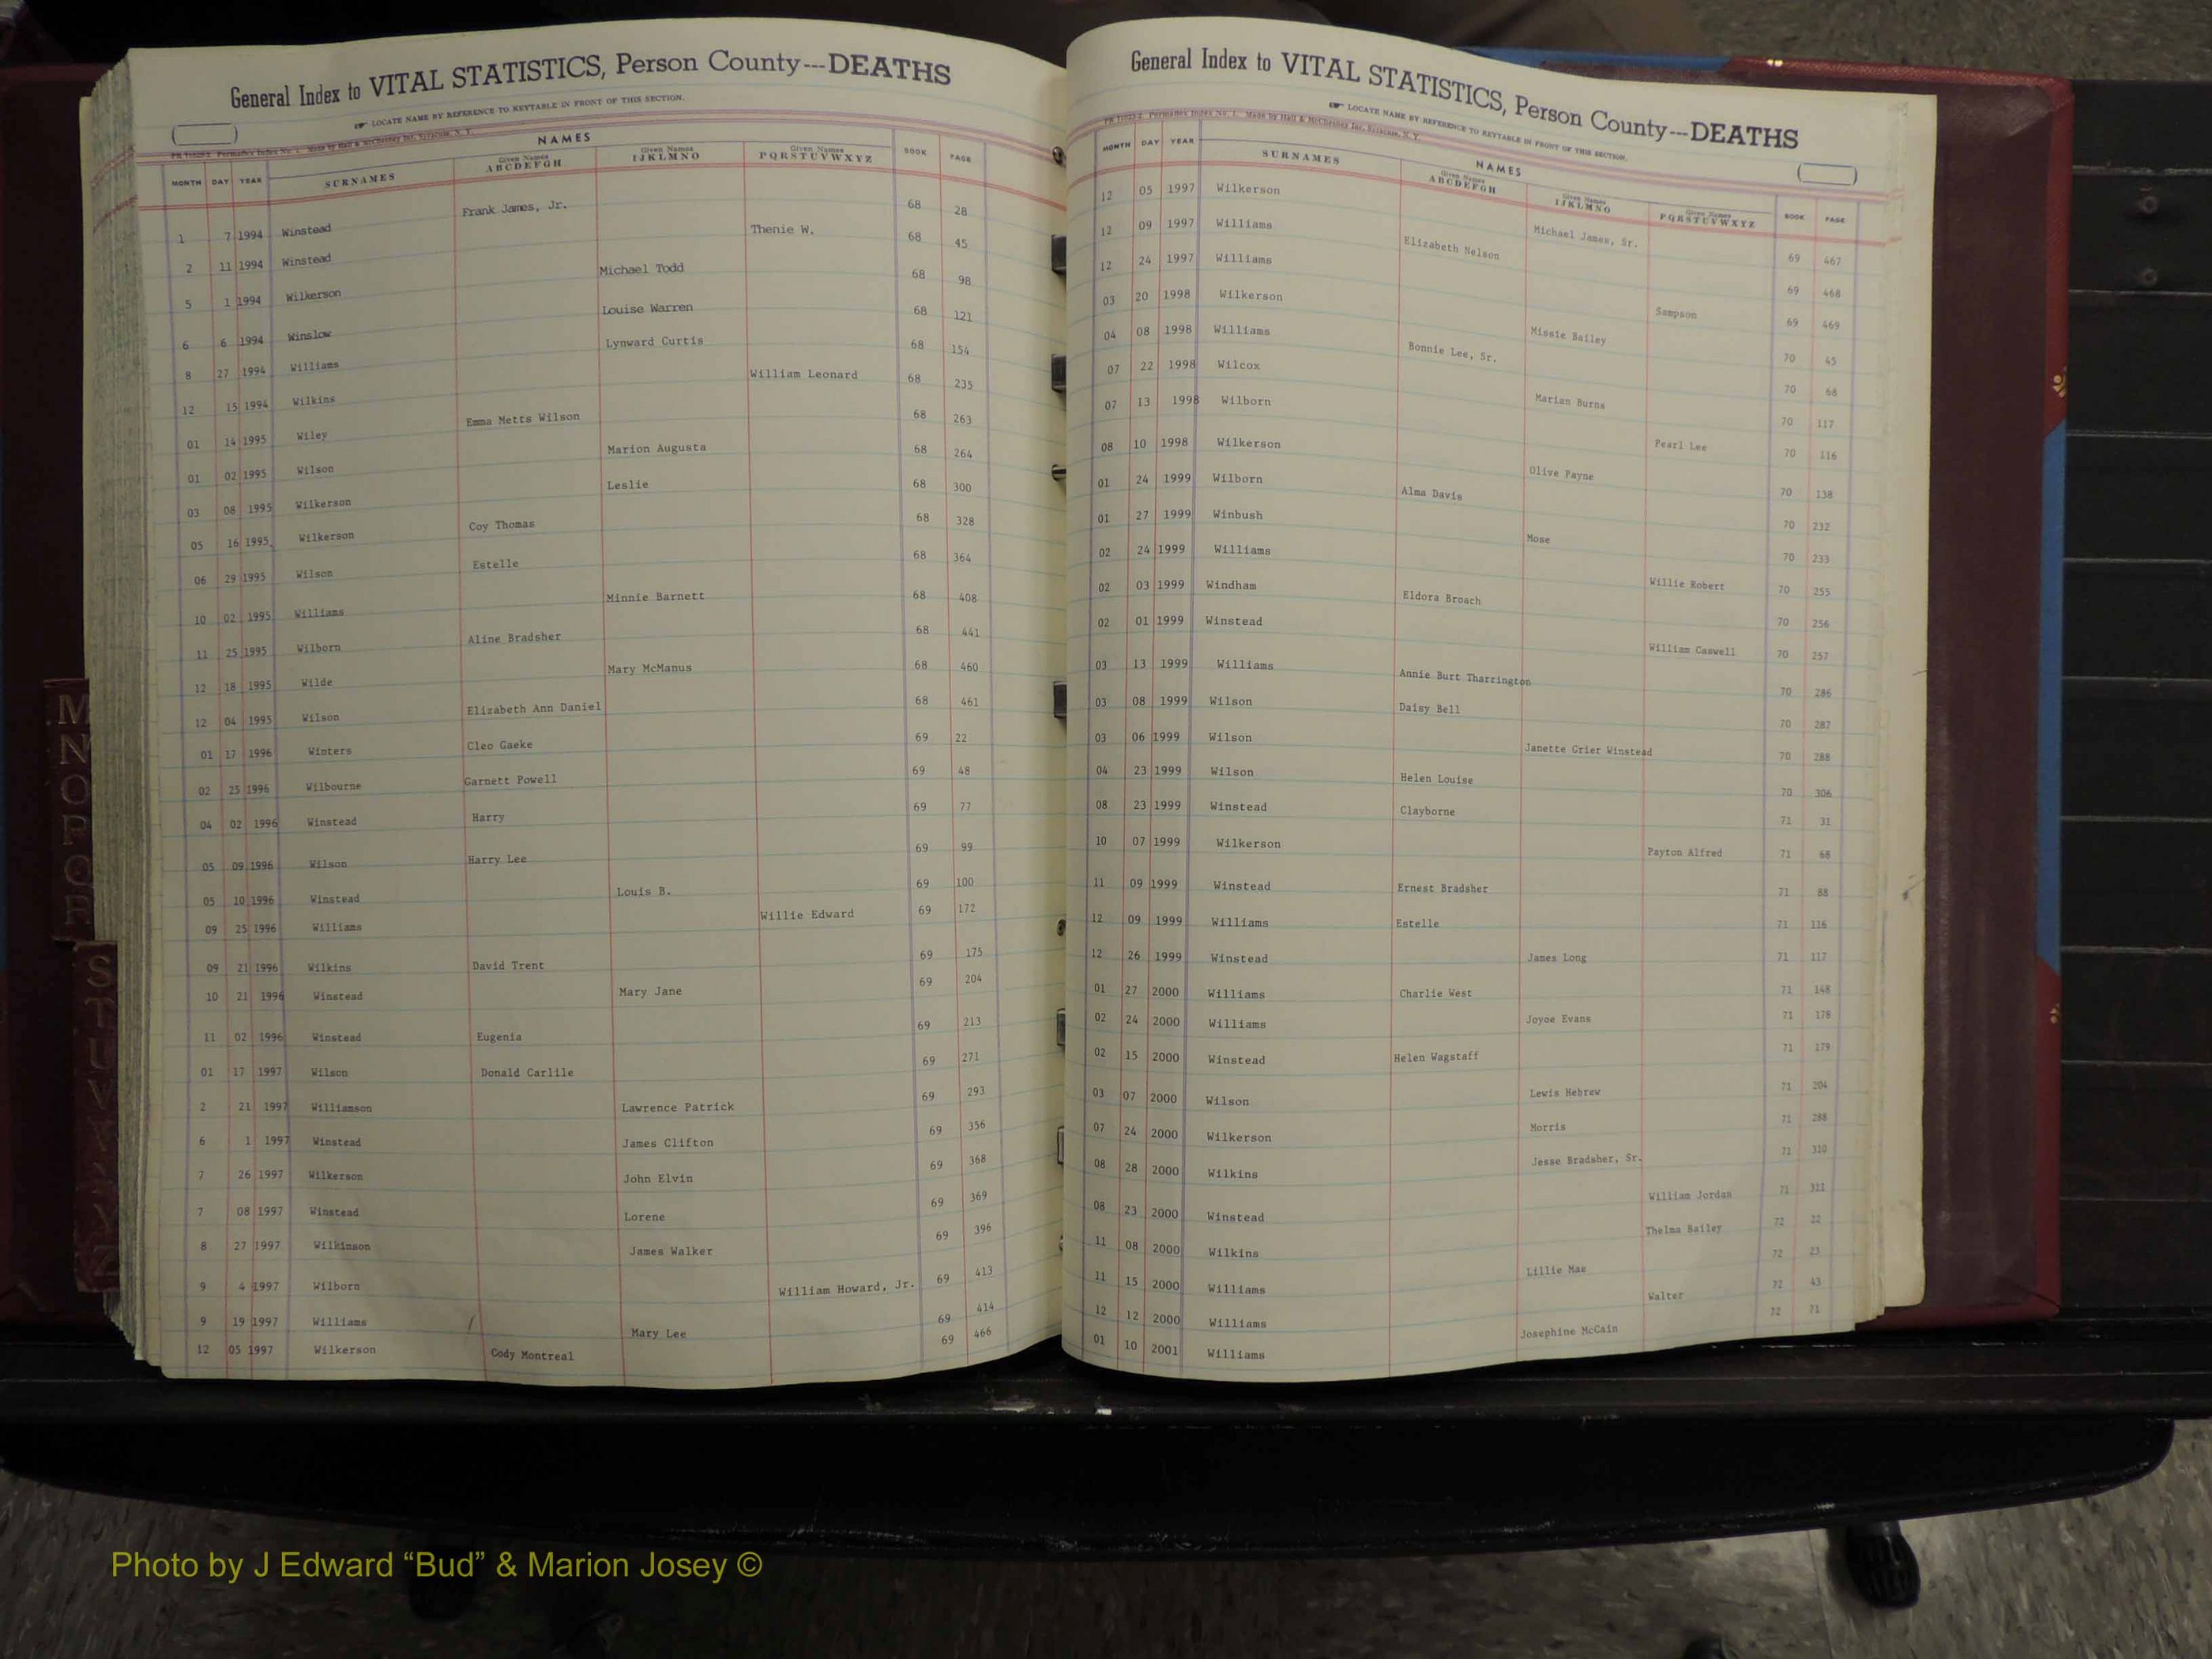 General Index to VITAL STATISTICS, Person County---DEATHS
LOCATE NAME BY REFERENCE TO KEYTABLE IN FRONT OF THIS SECTION.
NAMES
MONTH DAY YEAR SURNAMES Given Names ABCDEFGH Given Names IJKLMNO Given Names PQRSTUVWXYZ BOOK PAGE
1 7 1994 Winstead Frank James, Jr. 68 28
2 11 1994 Winstead Thenie W. 68 45
5 1 1994 Wilkerson Michael Todd 68 98
6 6 1994 Winslow Louise Warren 68 121
8 27 1994 Williams Lynward Curtis 68 154
12 15 1994 Wilkins William Leonard 68 235
01 14 1995 Wiley Emma Metts Wilson 68 263
01 02 1995 Wilson Marion Augusta 68 264
03 08 1995 Wilkerson Leslie 68 300
05 16 1995 Wilkerson Coy Thomas 68 328
06 29 1995 Wilson Estelle 68 364
10 02 1995 Williams Minnie Barnett 68 408
11 25 1995 Wilborn Aline Bradsher 68 441
12 18 1995 Wilde Mary McManus 68 460
12 04 1995 Wilson Elizabeth Ann Daniel 68 461
01 17 1996 Winters Cleo Gaeke 69 22
02 25 1996 Wilbourne Garnett Powell 69 48
04 02 1996 Winstead Harry 69 77
05 09 1996 Wilson Harry Lee 69 99
05 10 1996 Winstead Louis B. 69 100
09 25 1996 Williams Willie Edward 69 172
09 21 1996 Wilkins David Trent 69 175
10 21 1996 Winstead Mary Jane 69 204
11 02 1996 Winstead Eugenia 69 213
01 17 1997 Wilson Donald Carlile 69 271
2 21 1997 Williamson Lawrence Patrick 69 293
6 1 1997 Winstead James Clifton 69 356
7 26 1997 Wilkerson John Elvin 69 368
7 08 1997 Winstead Lorene 69 369
8 27 1997 Wilkinson James Walker 69 396
9 4 1997 Wilborn William Howard, Jr. 69 413
9 19 1997 Williams Mary Lee 69 414
12 05 1997 Wilkerson Cody Montreal 69 466
General Index to VITAL STATISTICS, Person County---DEATHS
LOCATE NAME BY REFERENCE TO KEYTABLE IN FRONT OF THIS SECTION.
NAMES
MONTH DAY YEAR SURNAMES Given Names ABCDEFGH Given Names IJKLMNO Given Names PQRSTUVWXYZ BOOK PAGE
12 05 1997 Wilkerson Michael James, Sr. 69 467
12 09 1997 Williams Elizabeth Nelson 69 468
12 24 1997 Williams Sampson 69 469
03 20 1998 Wilkerson Missie Bailey 70 45
04 08 1998 Williams Bonnie Lee, Sr. 70 68
07 22 1998 Wilcox Marian Burns 70 117
07 13 1998 Wilborn Pearl Lee 70 116
08 10 1998 Wilkerson Olive Payne 70 138
01 24 1999 Wilborn Alma Davis 70 232
01 27 1999 Winbush Mose 70 233
02 24 1999 Williams Willie Robert 70 255
02 03 1999 Windham Eldora Broach 70 256
02 01 1999 Winstead William Caswell 70 257
03 13 1999 Williams Annie Burt Tharrington 70 286
03 08 1999 Wilson Daisy Bell 70 287
03 06 1999 Wilson Janette Grier Winstead 70 288
04 23 1999 Wilson Helen Louise 70 306
08 23 1999 Winstead Clayborne 71 31
10 07 1999 Wilkerson Payton Alfred 71 68
11 09 1999 Winstead Ernest Bradsher 71 88
12 09 1999 Williams Estelle 71 116
12 26 1999 Winstead James Long 71 117
01 27 2000 Williams Charlie West 71 148
02 24 2000 Williams Joyce Evans 71 178
02 15 2000 Winstead Helen Wagstaff 71 179
03 07 2000 Wilson Lewis Hebrew 71 204
07 24 2000 Wilkerson Morris 71 288
08 28 2000 Wilkins Jesse Bradsher, Sr. 71 310
08 23 2000 Winstead William Jordan 71 321
11 08 2000 Wilkins Thelma Bailey 72 22
11 15 2000 Williams Lillie Mae 72 23
12 12 2000 Williams Walter 72 43
01 10 2001 Williams Josephine McCain 72 71
Photo by J Edward “Bud” & Marion Josey ©